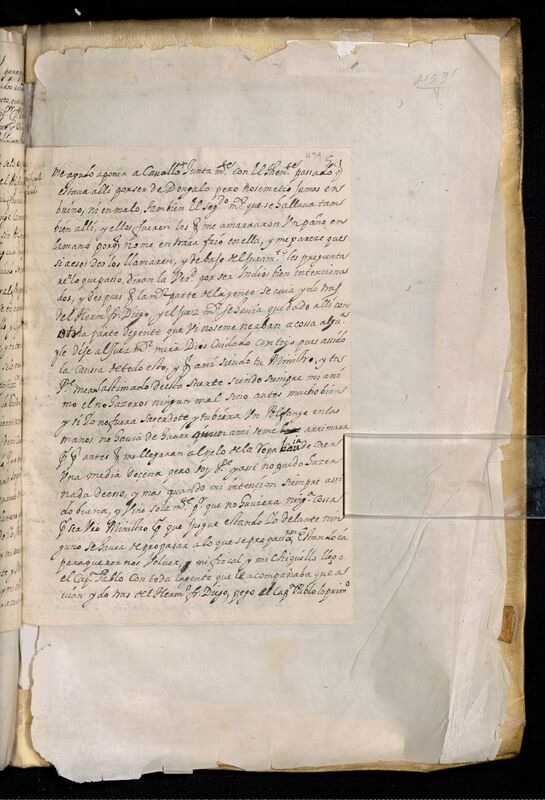 2153
479
me ayudo a poner a Cavallo Junta mte con el then.te passado, q
estava alli por ser de Dongalo pero no se metio Jamas en
bueno, ni en malo, tambien el seg.do m.r que se hallava tam
bien alli, y ellos fueron los q me amarraron Un paño en
la mano porq no me entrara frio en ella, y me pareze que
si a esos dos los llamaren, y debaxo de Juram.to les pregunta
re lo que passo, diran la Ver.d por ser Indios bien intenciona
dos, y despues q la m.r parte de la gente se avia ydo tras
del Herm.o fr. Diego, y el Juez m.r se havia quedado alli con
otra parte de gente que Ui no se meneaban a cosa algu.a
le dixe al Juez m.r mira Dios Cuidado contigo pues as sido
la Causa de todo esto, y q ami siendo tu Ministro, y tu
P.e me an lastimado de esta Suerte siendo siempre mi ani
mo el no hazeros ningun mal sino antes mucho bien
y si Yo no fuera Sacerdote y tubiera Un Alfange en las
manos no havia de haver quien ami se me arrimara
q antes q me llegaran al pelo de la Ropa havia de caer
Una media dozena pero soy P.e y assi no puedo hazer
nada de eso, y mas quando mi intencion siempre assi
do buena, y Vine solo
q ser Vio Ministro q que juzgue estando Yo delante nin
guno se havia de propasar a lo que se propassaron Estando ya
para querernos Volver, mi fiscal y mi chiquillo llego
el Cap.n Pablo con toda la gente que le acompañaba que a
vian ydo tras del Herm.o fr. Diego, pego el Cap.n Pablo lo prim.o